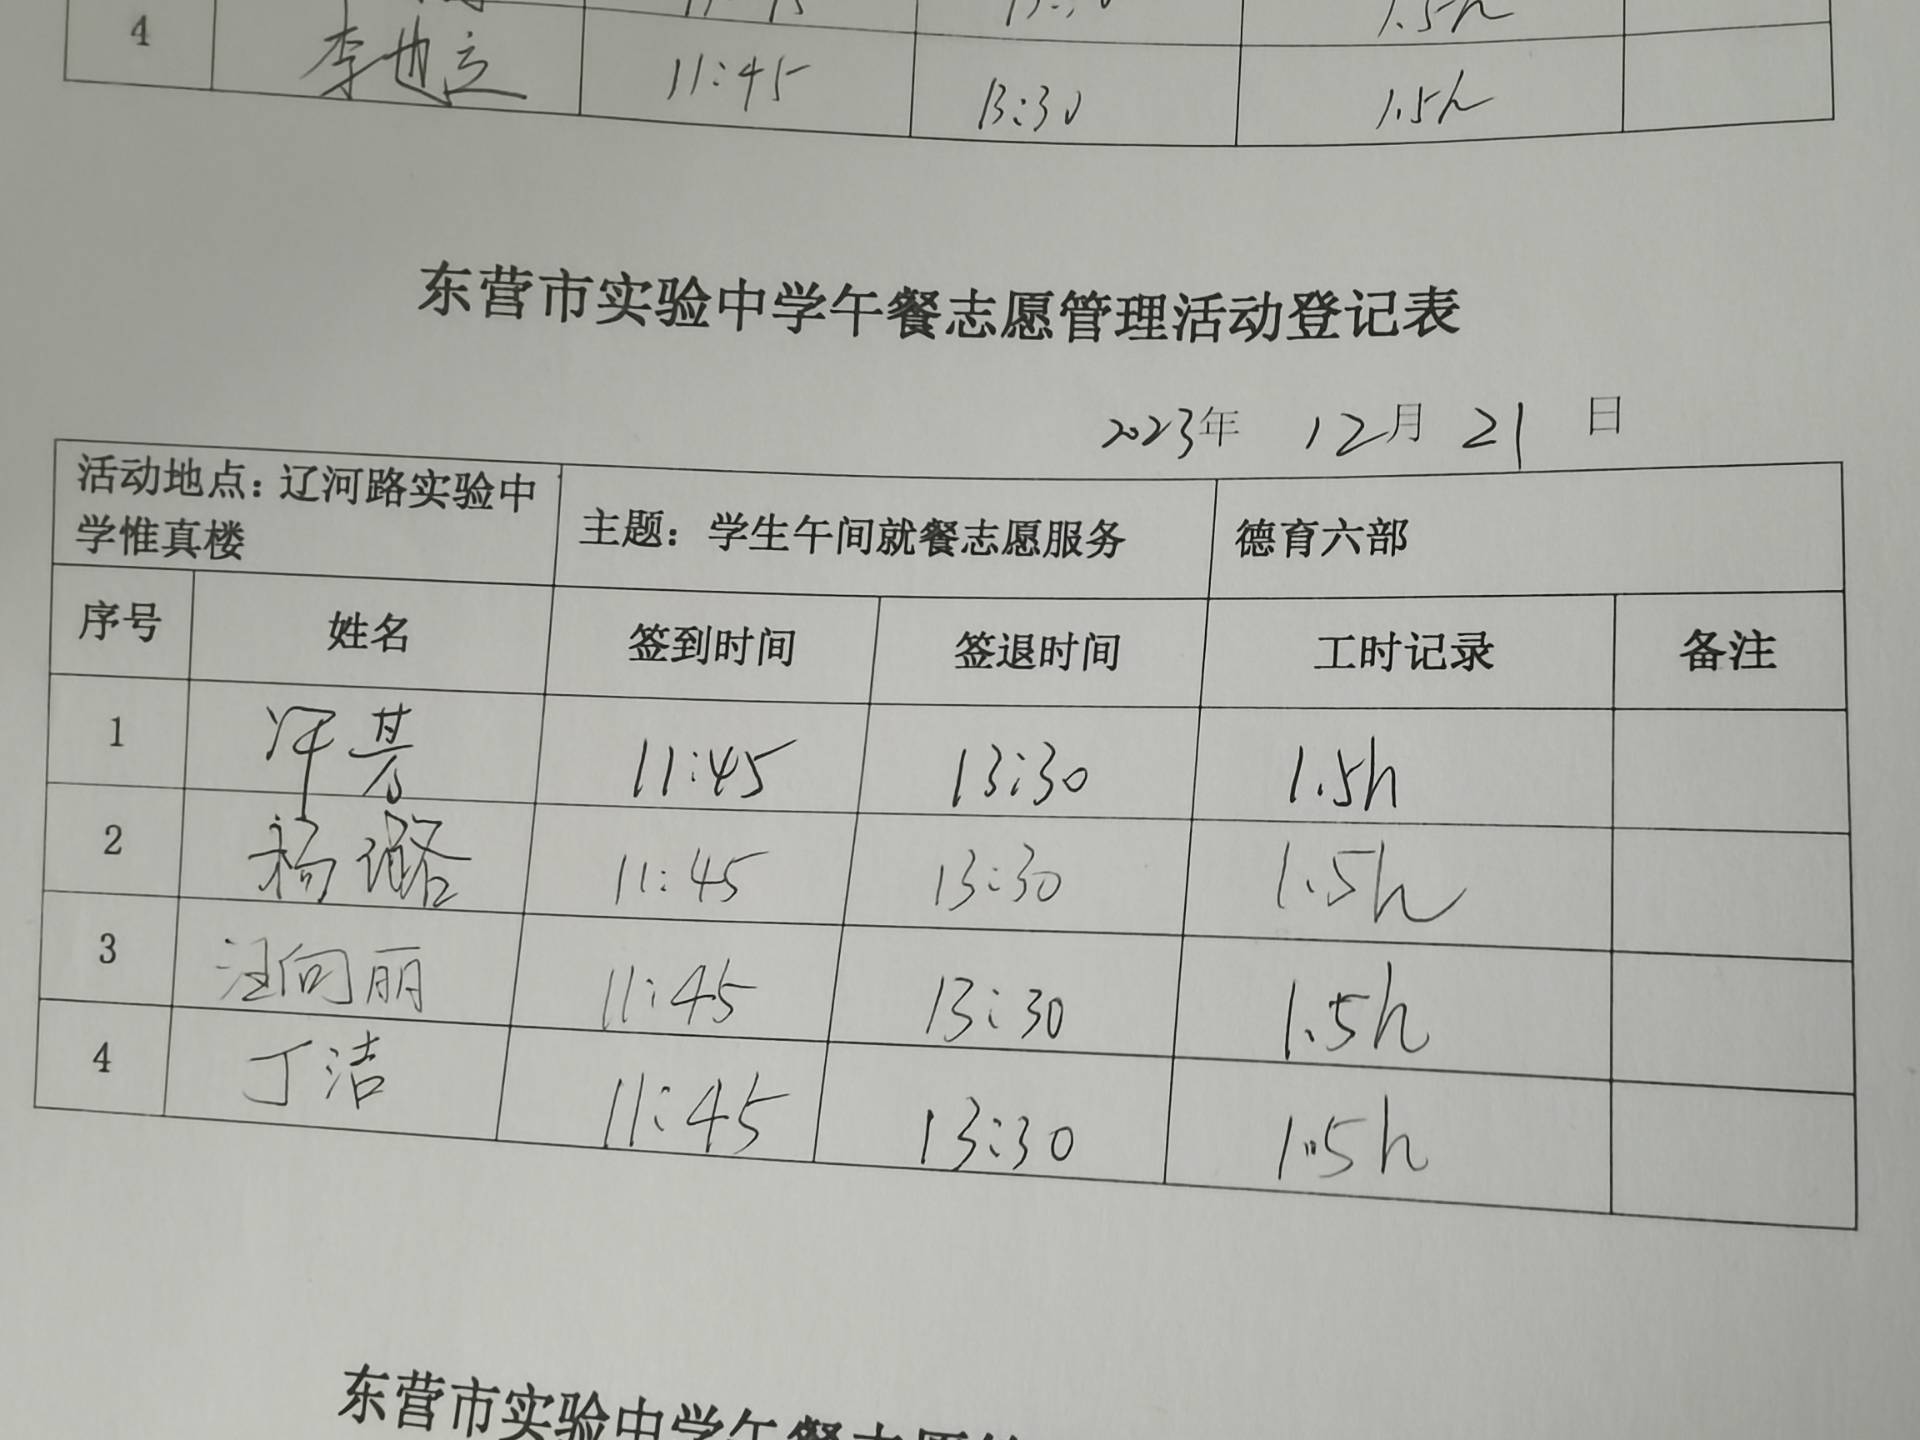 4 李也立 11:45 13:30 1.5h
东营市实验中学午餐志愿管理活动登记表
2023年 12月 21 日
活动地点：辽河路实验中
学惟真楼
主题：学生午间就餐志愿服务
德育六部
序号 姓名 签到时间 签退时间 工时记录 备注
1 11:45 13:30 1.5h
2 杨璐 11:45 13:30 1.5h
3 汪向丽 11:45 13:30 1.5h
4 丁洁 11:45 13:30 1.5h
东营市实验中学午餐志愿